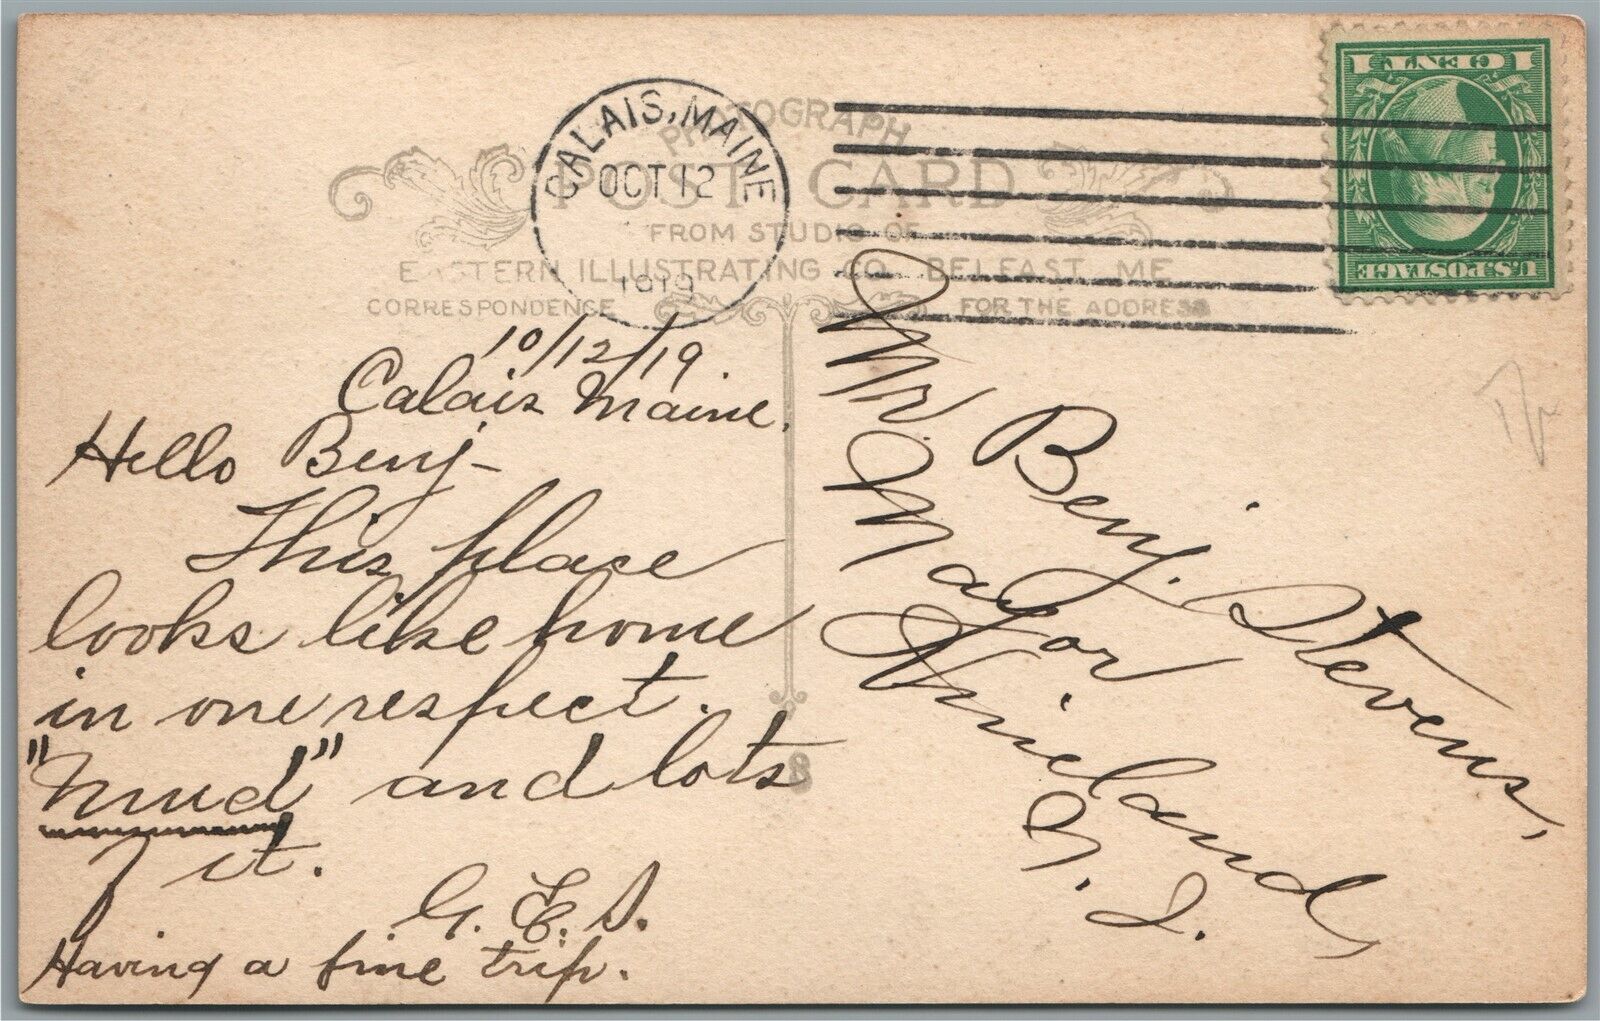 CALAIS, MAINE
OCT 12
1919
1 CENT 1
U.S. POSTAGE
PHOTOGRAPH
POST CARD
FROM STUDIO OF
EASTERN ILLUSTRATING CO. BELFAST, ME
CORRESPONDENCE FOR THE ADDRESS
10/12/19.
Calais Maine.
Hello Benj-
This place
looks like home
in one respect.
"Mud" and lots
of it.
G. E. S.
Having a fine trip.
Mr. Benj. Stevens,
Mayor
Vineland,
N. J.